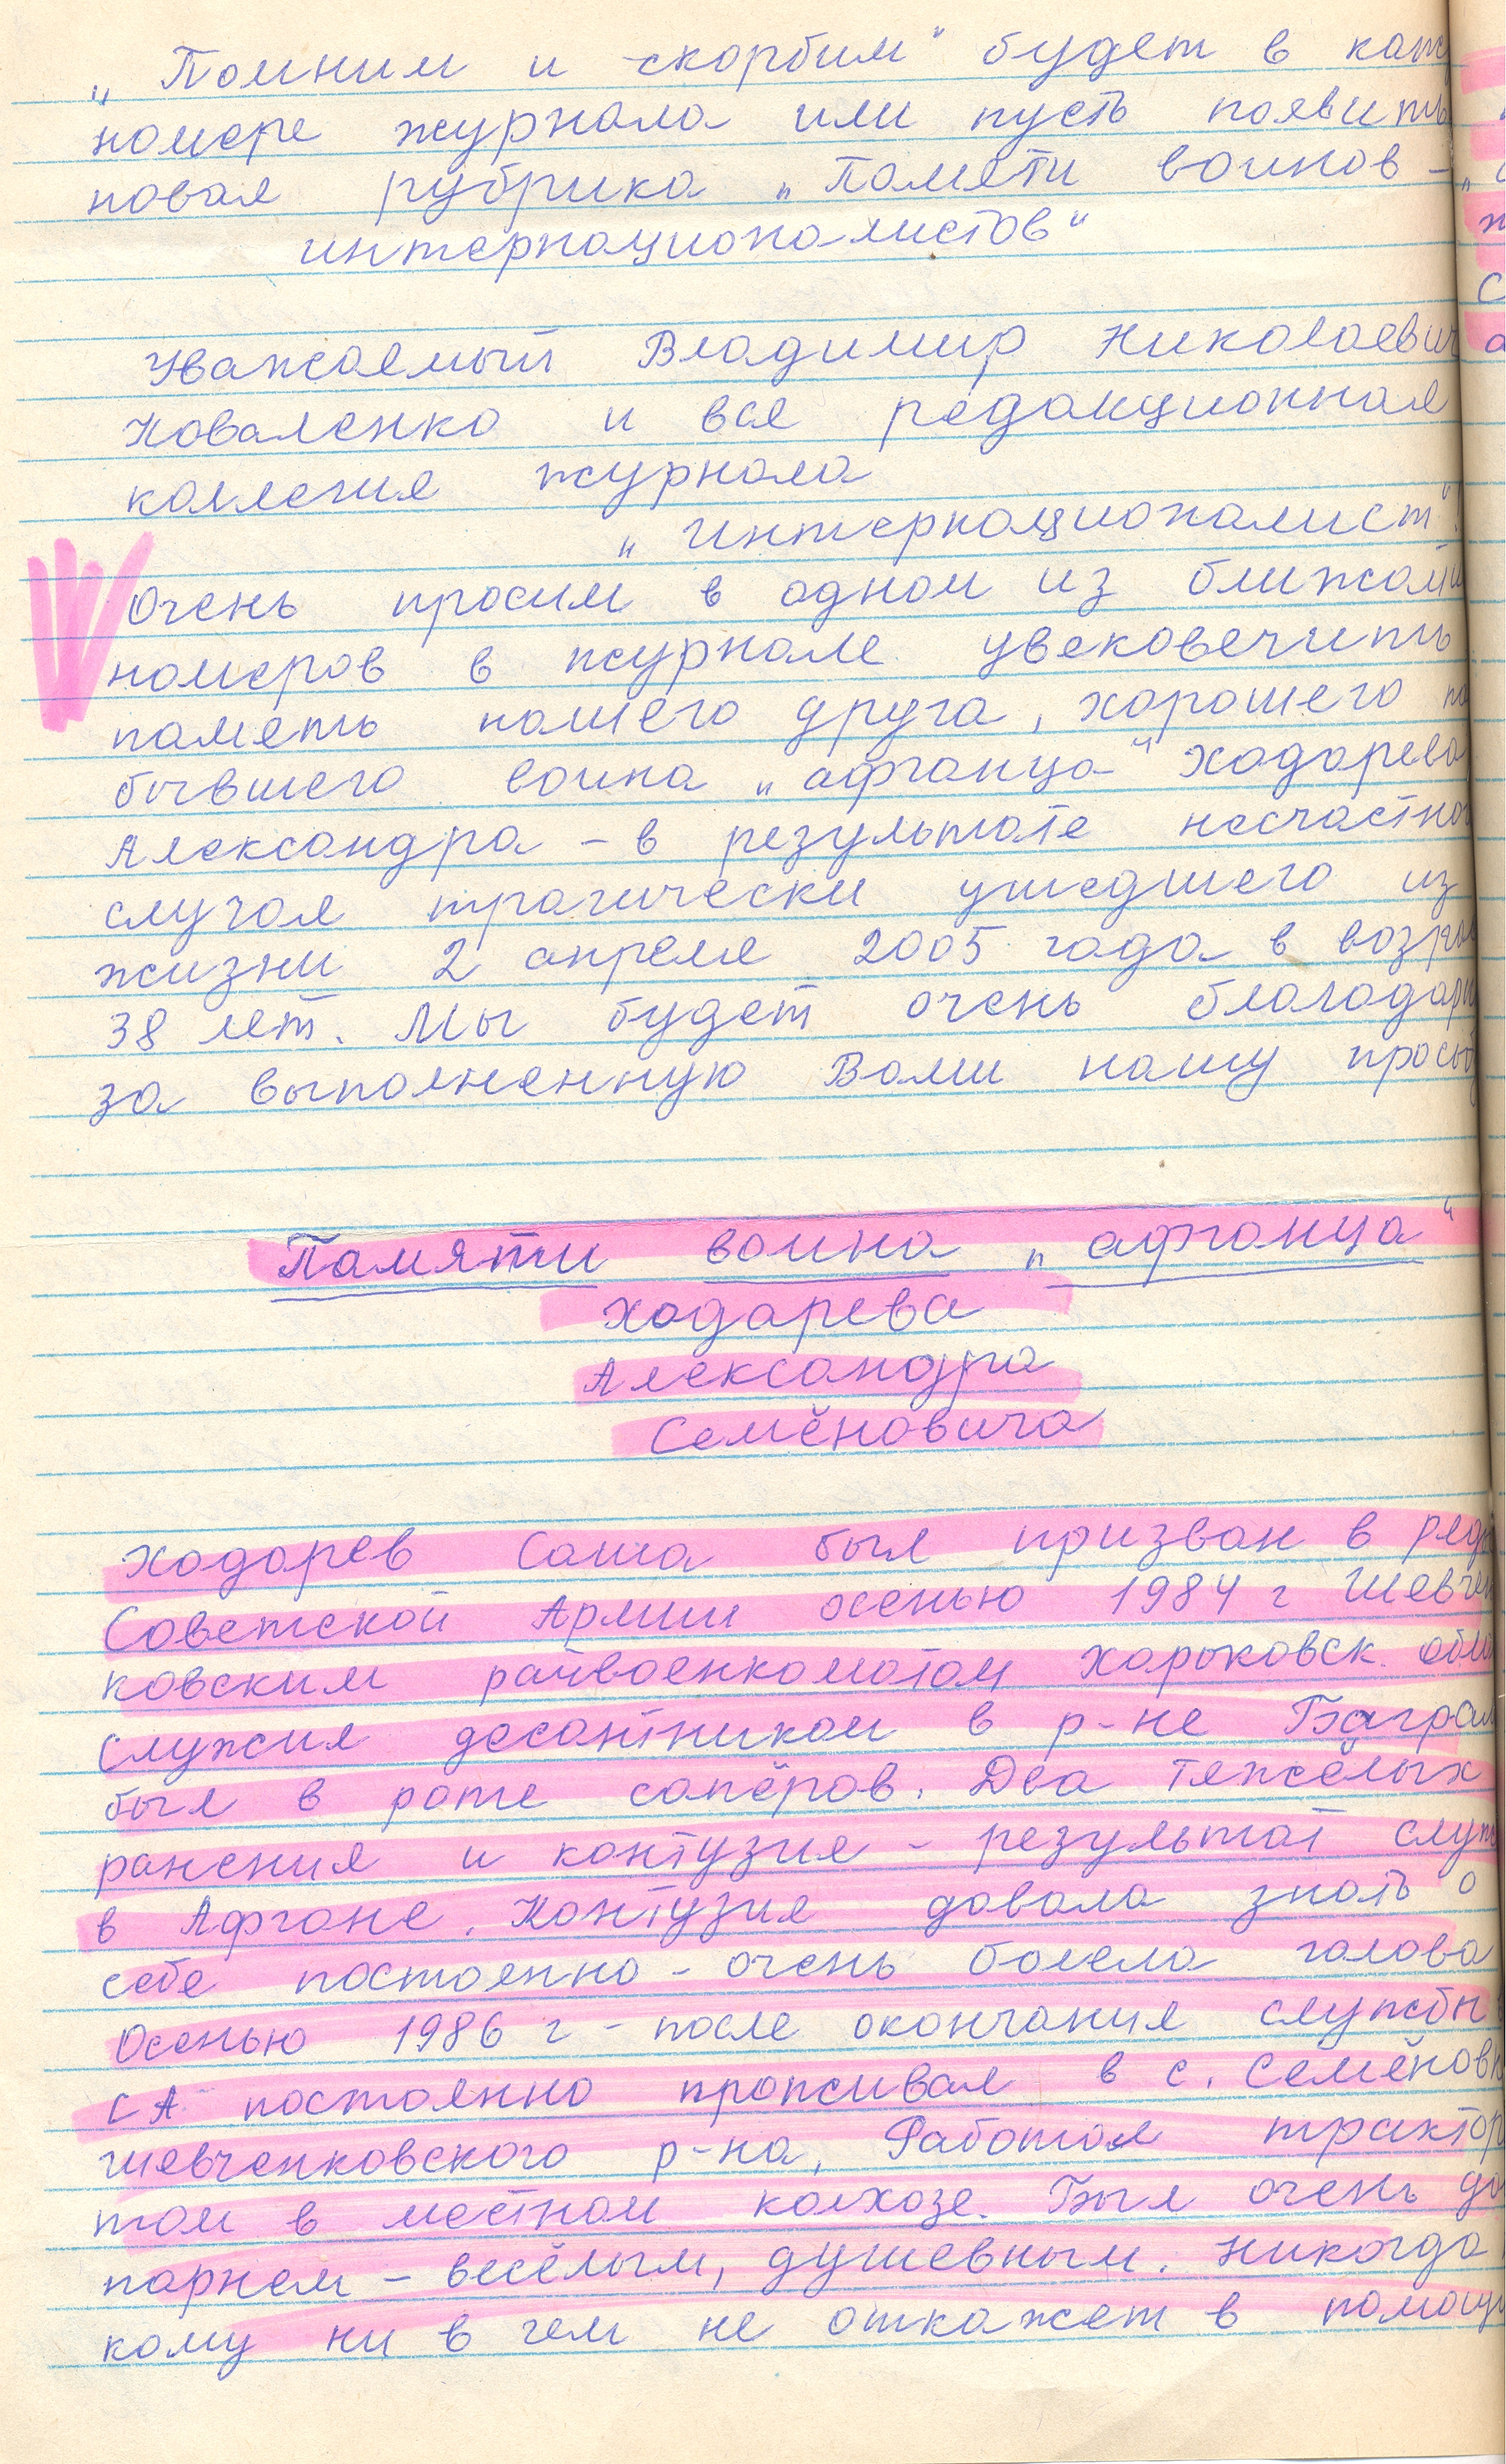 „Помним и скорбим“ будет в каж
номере журнала или пусть появить
новая рубрика „Памяти воинов –
интернационалистов“
Уважаемый Владимир Николаевич
Коваленко и вся редакционная
коллегия журнала
„Интернационалист“!
Очень просим в одном из ближай
номеров в журнале увековечить
память нашего друга, хорошего
бывшего воина „афганца“ Ходарева
Александра – в результате несчастног
случая трагически ушедшего из
жизни 2 апреля 2005 года в возрас
38 лет. Мы будет очень благодарн
за выполненную Вами нашу просьб
Памяти воина „афганца“
Ходарева
Александра
Семёновича
Ходарев Саша был призван в ряды
Советской Армии осенью 1984 г Шевчен
ковским райвоенкоматом Харьковск. обла
Служил десантником в р-не Баграм
был в роте сапёров. Два тяжёлых
ранения и контузия – результат служ
в Афгане. Контузия давала знать о
себе постоянно – очень болела голова
Осенью 1986 г – после окончания службы
СА постоянно проживал в с. Семёновк
Шевченковского р-на, Работал трактор
том в местном колхозе. Был очень до
парнем – весёлым, душевным. Никогда
кому ни в чем не откажет в помощи